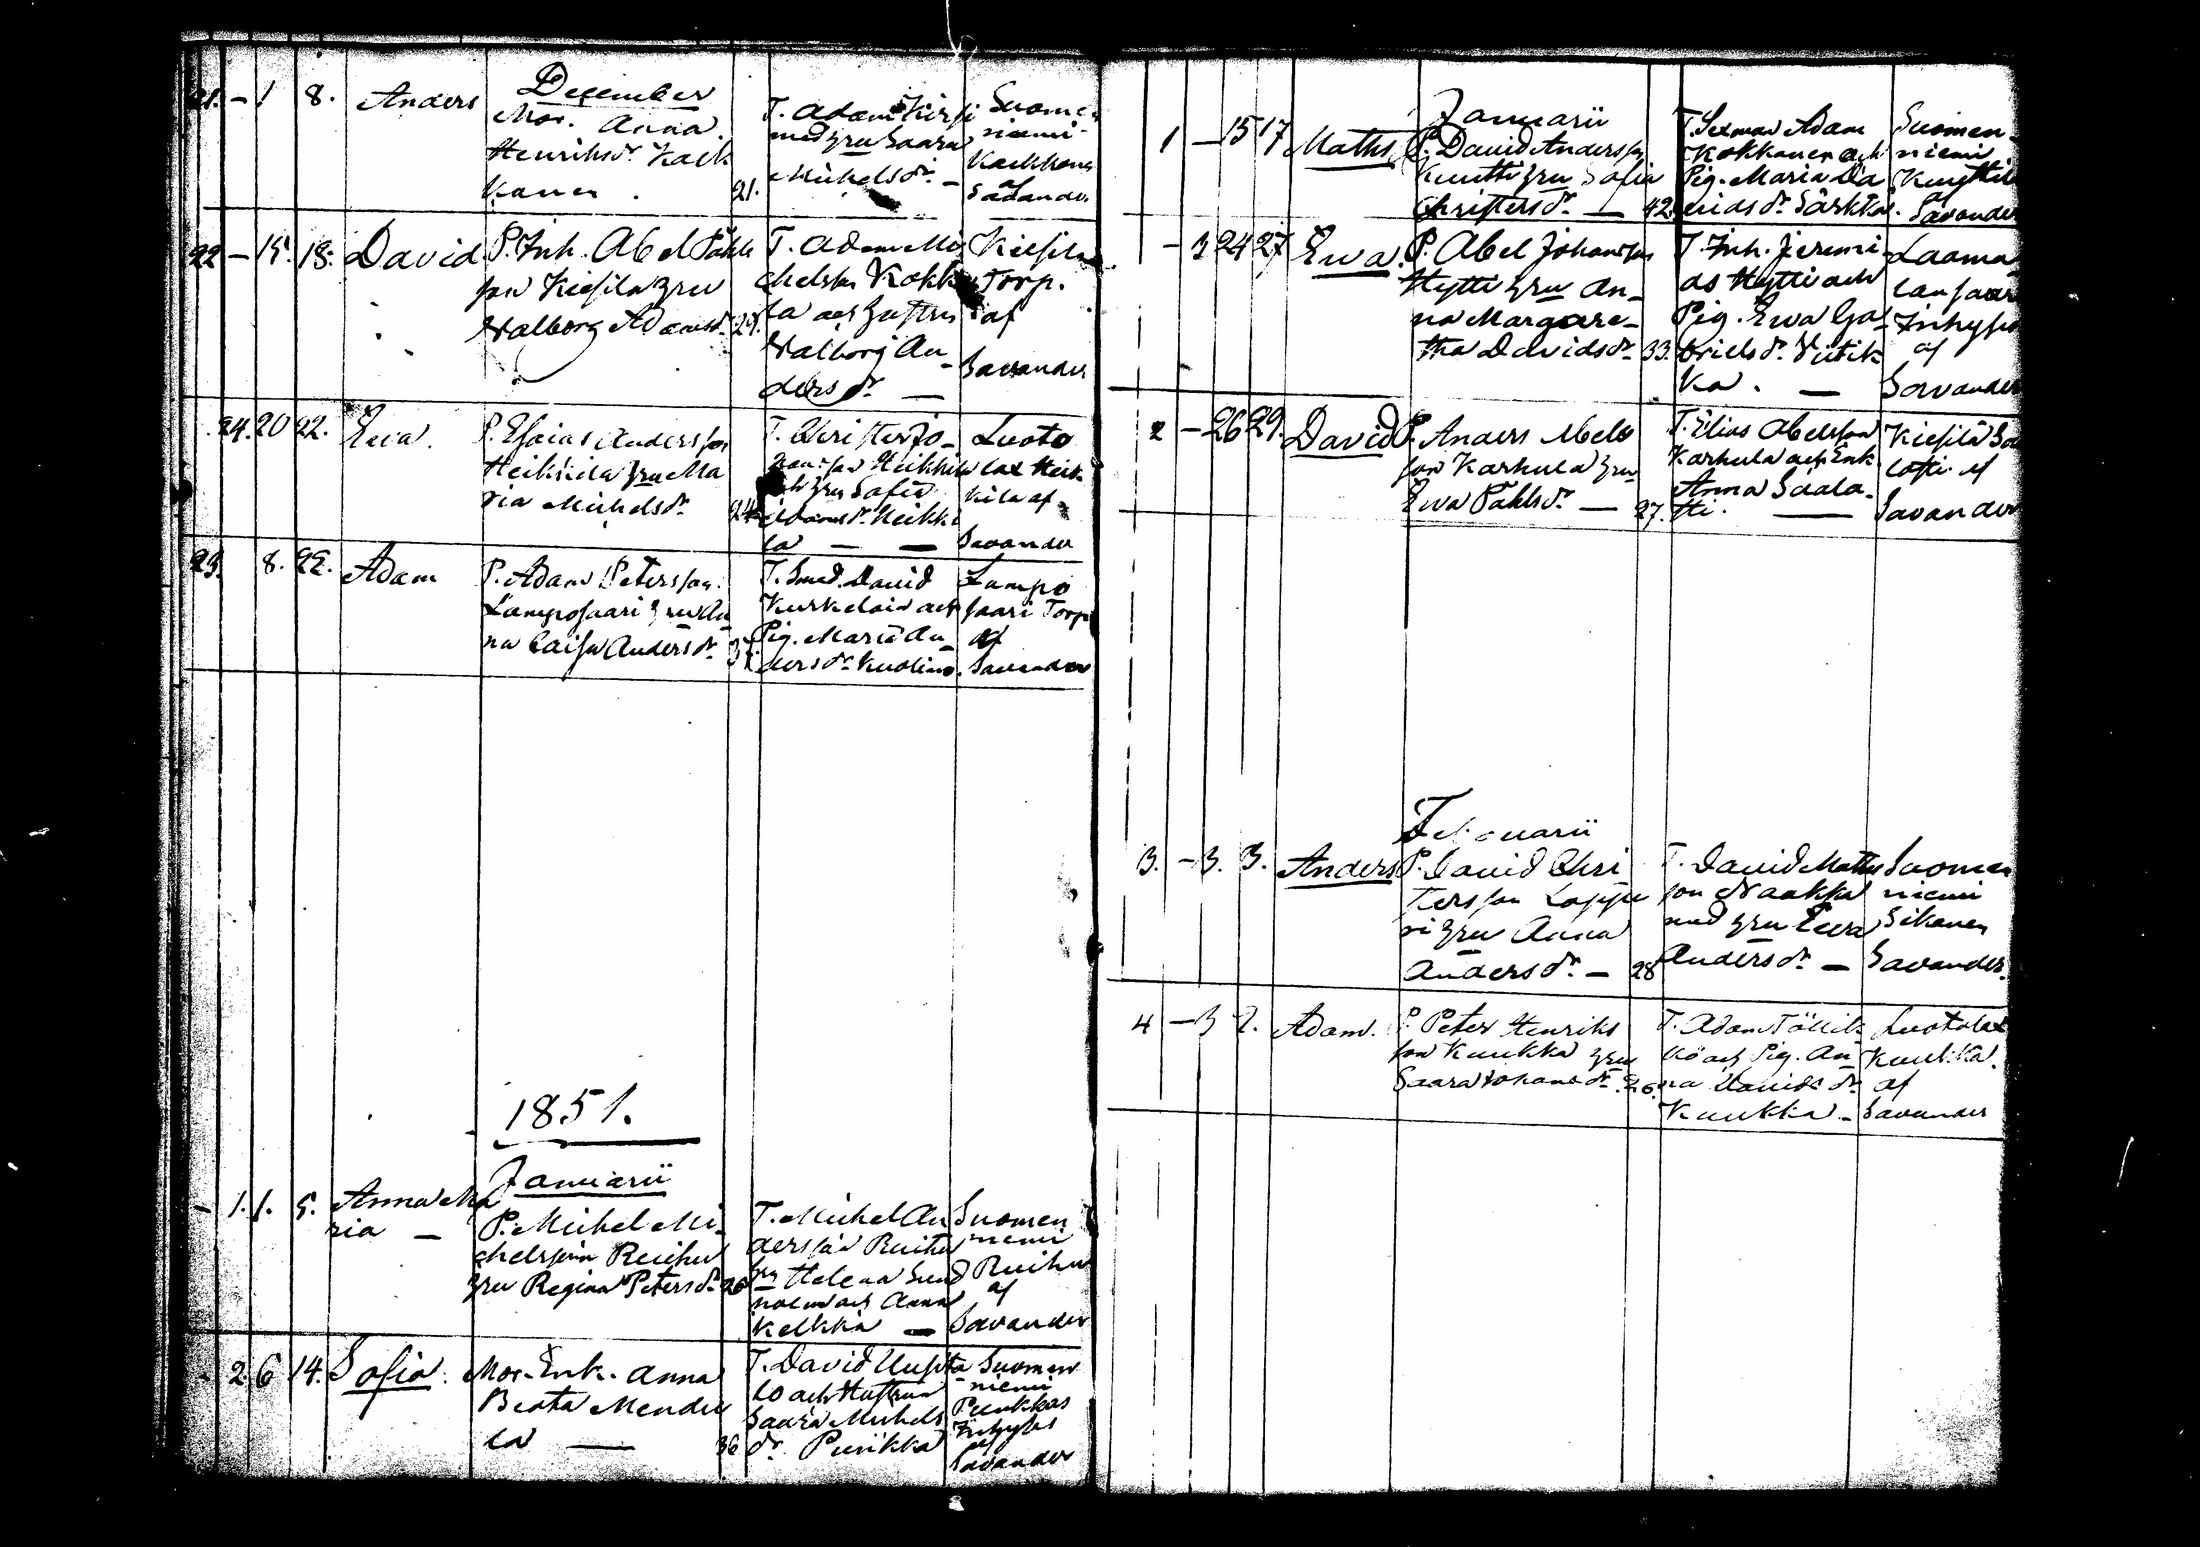 December
21. — 1 8. Anders
Mor. Anna
Henriksdr. Kack
kanen . 21.
T. Adam Kirsi
med hru Saara
Michelsdr. —
Suomen
niemi
Kackkone
af
Savander
22 — 15. 18. David
P. Inh. Abel Påhls
son Kiesilä hru
Walborg Adamsdr. 29.
T. Adam Mi
chelsson Kokk
la och hustru
Walborg An
dersdr —
Kiesilä
Torp.
af
Savander
24. 20 22. Ewa.
P. Esaias Andersson
Heikkilä hru Ma
ria Michelsdr. 24
T. Christer Jo-
hansson Heikkilä
och hru Sofia
Adamsdr. Heikki
la — —
Luoto
lax Heik
kilä af
Savander
23. 8. 22. Adam
P. Adam Petersson
Lamposaari hru An
na Caisa Andersdr.
T. Smed. David
Kurkelain och
Pig. Maria An
dersdr. Kuolimo.
Lampo
saari Torp
af
Savander
1851.
Januarii
— 1. 1. 5. Anna Ma
ria —
P. Michel Mi
chelsson Reiihu
hru Regina Petersdr. 26
T. Michel An
dersson Ruihu
hru Helena Sund
holm och Anna
Kelkka —
Suomen
niemi
Ruihu
af
Savander
2. 6 14. Sofia.
Mor. Enk. Anna
Beata Mende
la — 36
T. David Uusita
lo och Hustrun
Saara Michels
dr. Purikka
Suomen
niemi
Inhyses
af
Savander
Januarii
1 — 15 17 Maths
P. David Andersson
Knutti hru Sofia
Christersdr. — 42.
T. Sexman Adam
Kokkonen och
Pig. Maria Da
vidsdr. Särkkä.
Suomen-
niemi
Knuttila
af
Savander
— 3 24 27 Ewa.
P. Abel Johansson
Hytti hru An-
na Margare-
tha Davidsdr. 33.
T. Inh. Jeremi-
as Hytti och
Pig. Ewa Ga-
brielsdr. Viitik
ka. —
Laama
lansaari
Inhyses
af
Savander
2 — 26 29. David
P. Anders Abels
son Karhula hru
Ewa Påhlsdr. — 27.
T. Elias Abelsson
Karhula och Enk
Anna Saala-
tti. —
Kiesilä Sa
latti af
Savander
Februarii
3. — 3. 3. Anders
P. David Chri
stersson Lappe
ri hru Anna
Andersdr. — 28
T. David Maths
son Naakka
med hru Eeva
Andersdr. —
Suomen
niemi
Sikanen
Savander.
4 — 3 7. Adam.
P. Peter Henriks
son Kuukka hru
Saara Johansdr. 26.
T. Adam Töllik
kö och Pig. An
na Davidsdr.
Kuukka —
Luotolax
Kuukka.
af
Savander